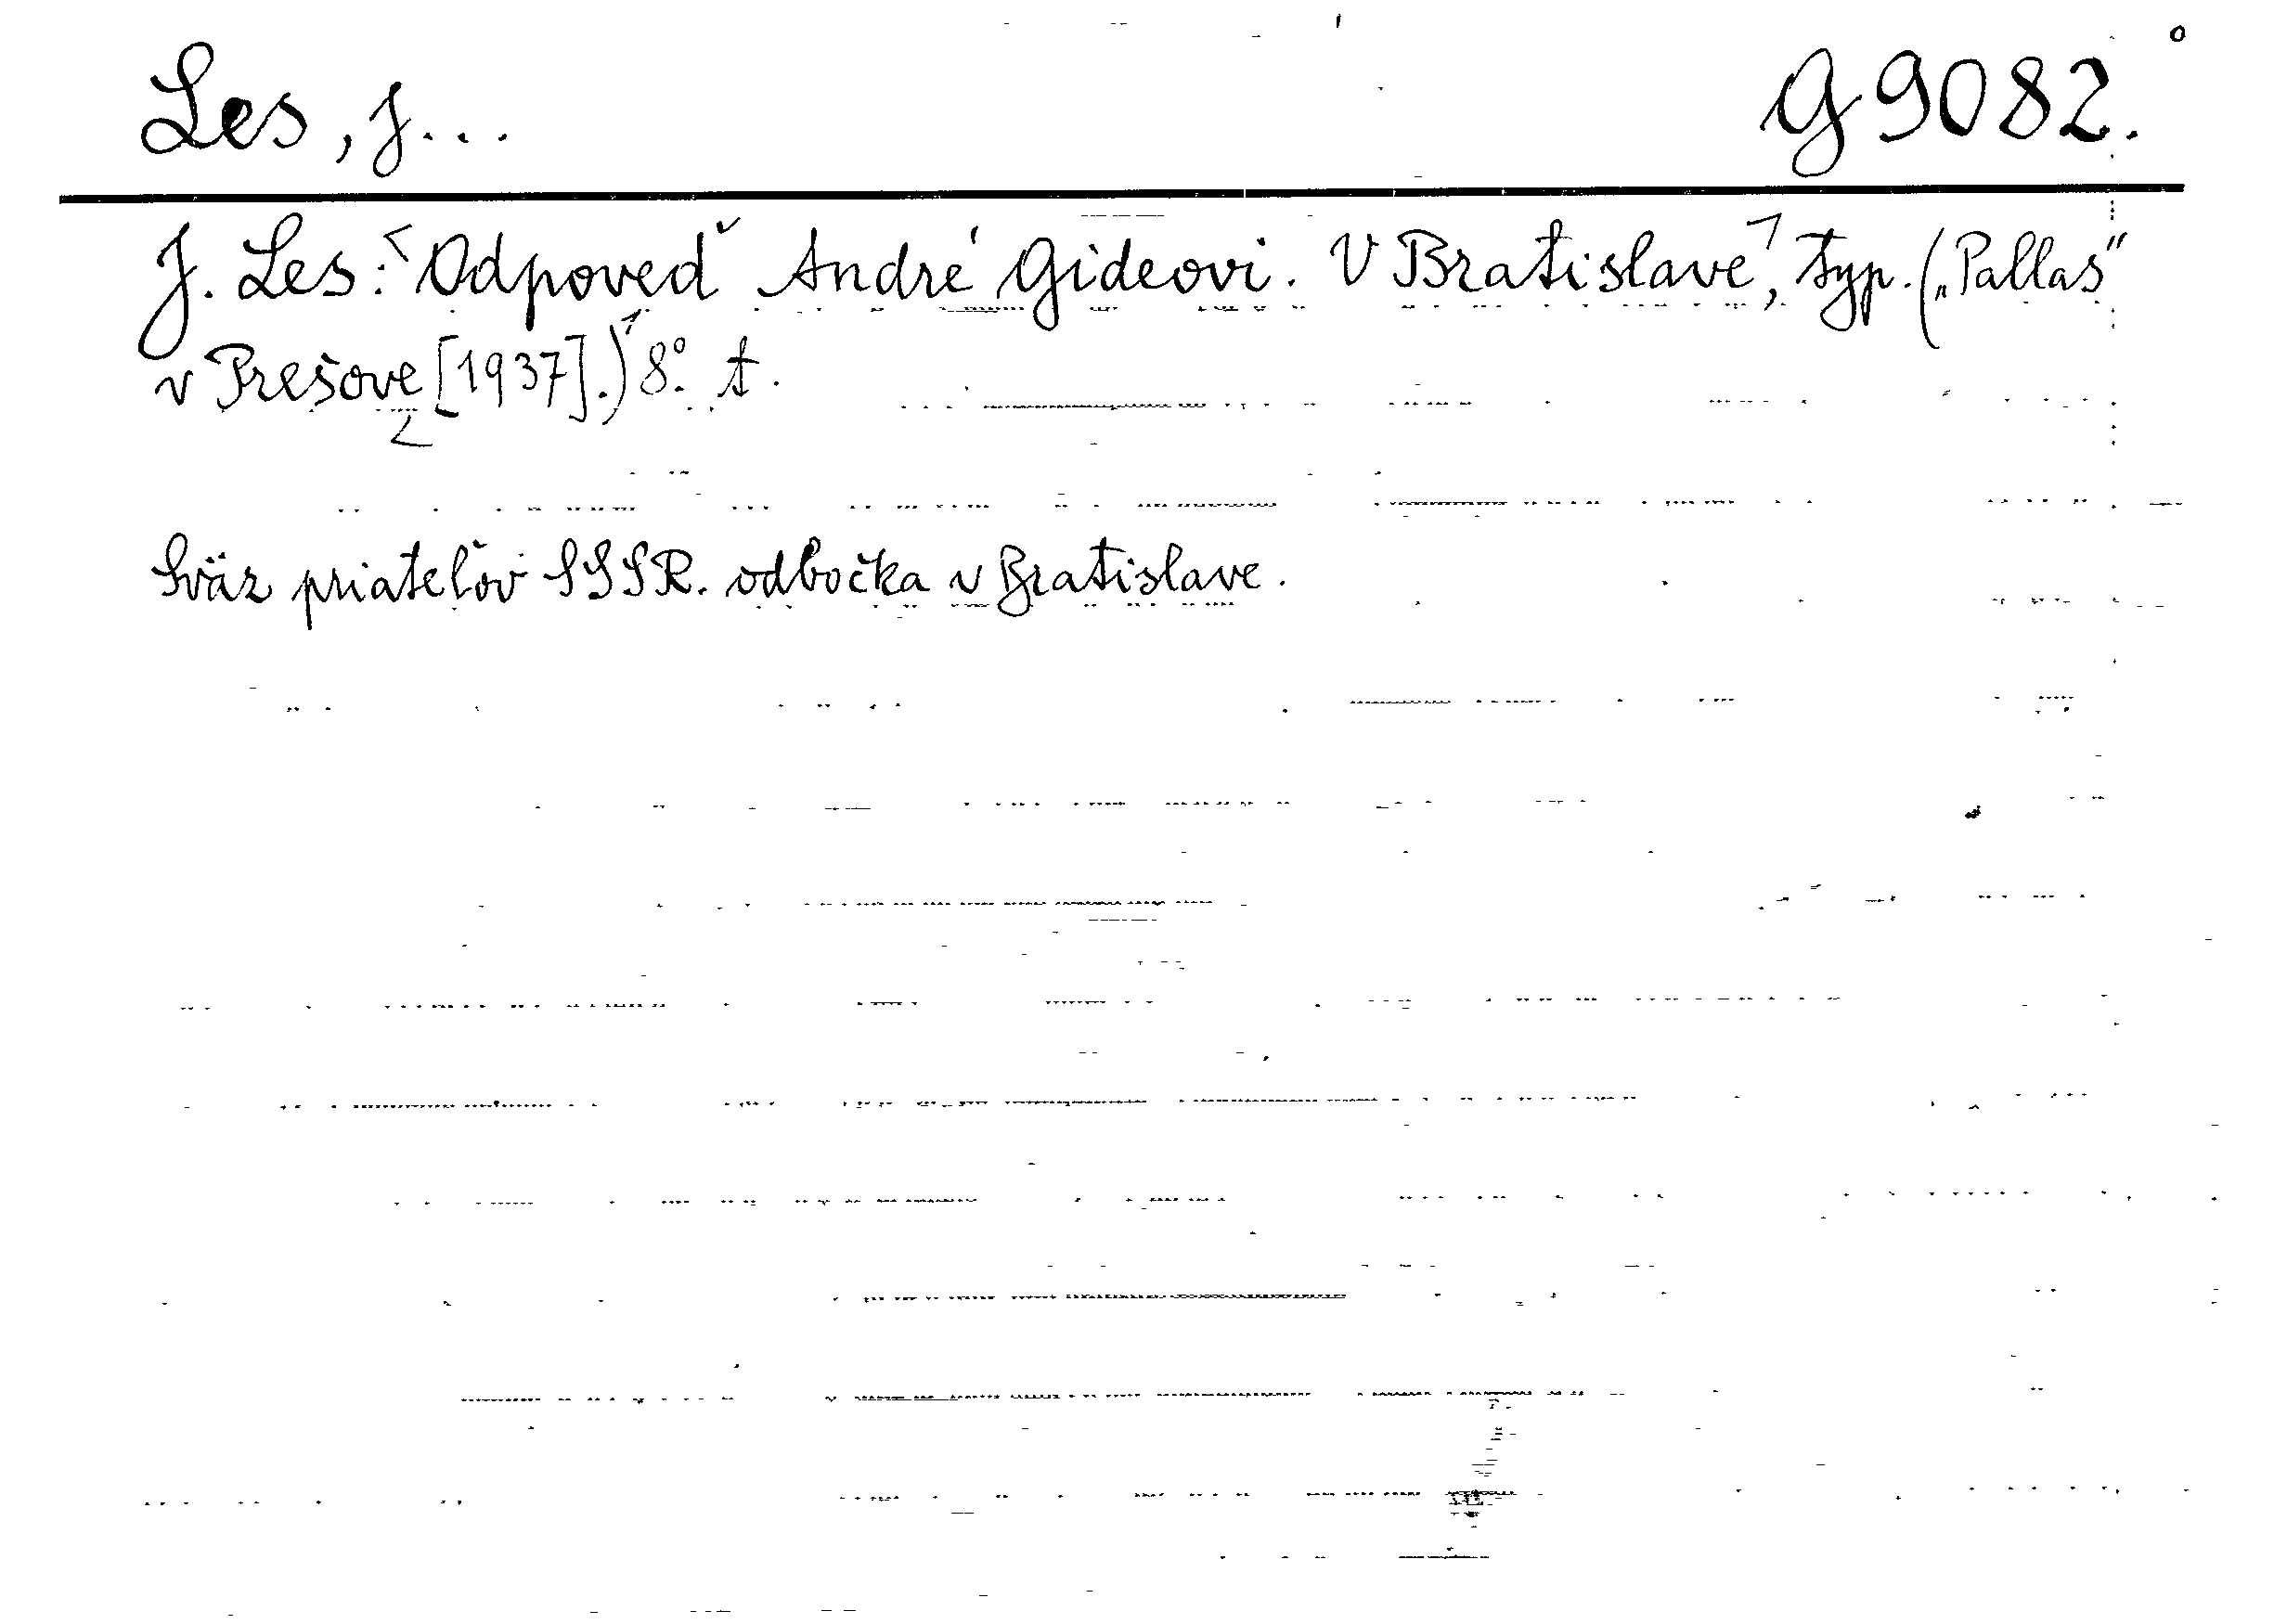 Les, J... G 9082.
J. Les: Odpoveď André Gideovi. V Bratislave, typ. („Pallas"
v Prešove [1937].) 8°. t.
Sväz priateľov SSSR. odbočka v Bratislave.